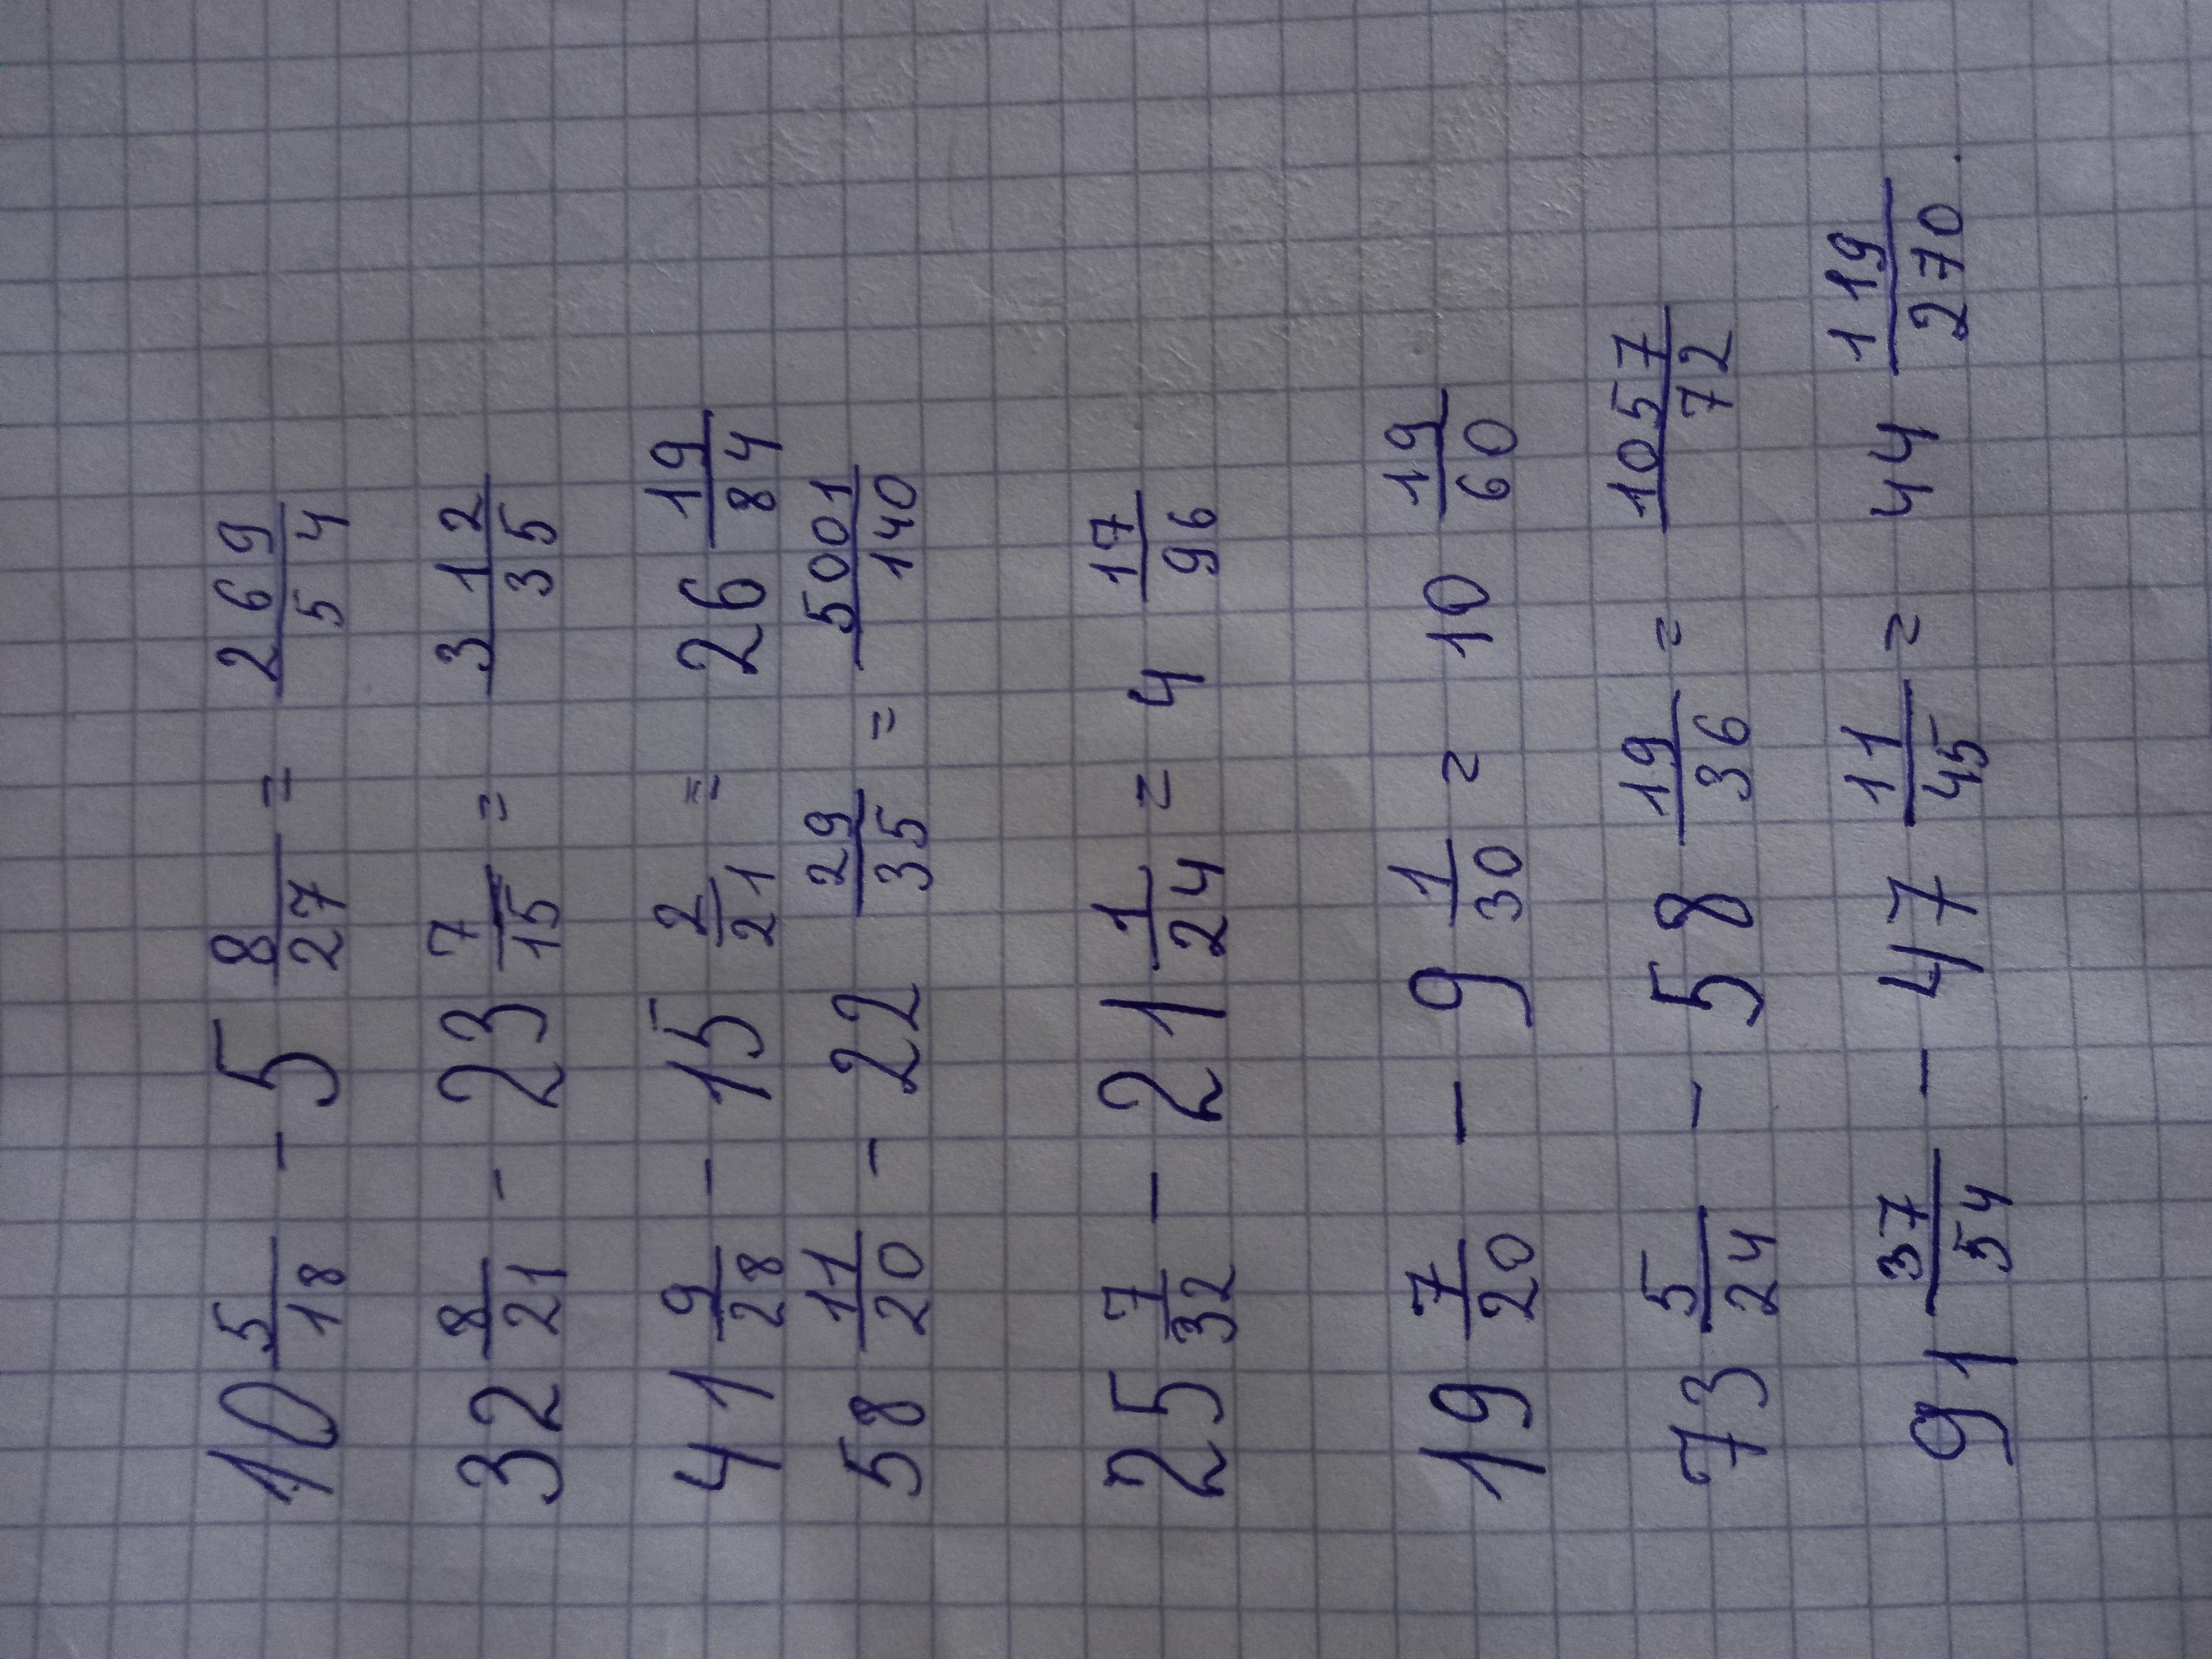 10 5/18 - 5 8/27 = 269/54
32 8/21 - 23 7/15 = 312/35
41 9/28 - 15 2/21 = 26 19/84
58 11/20 - 22 29/35 = 5001/140
25 7/32 - 21 1/24 = 4 17/96
19 7/20 - 9 1/30 = 10 19/60
73 5/24 - 58 19/36 = 1057/72
91 37/54 - 47 11/45 = 44 119/270.